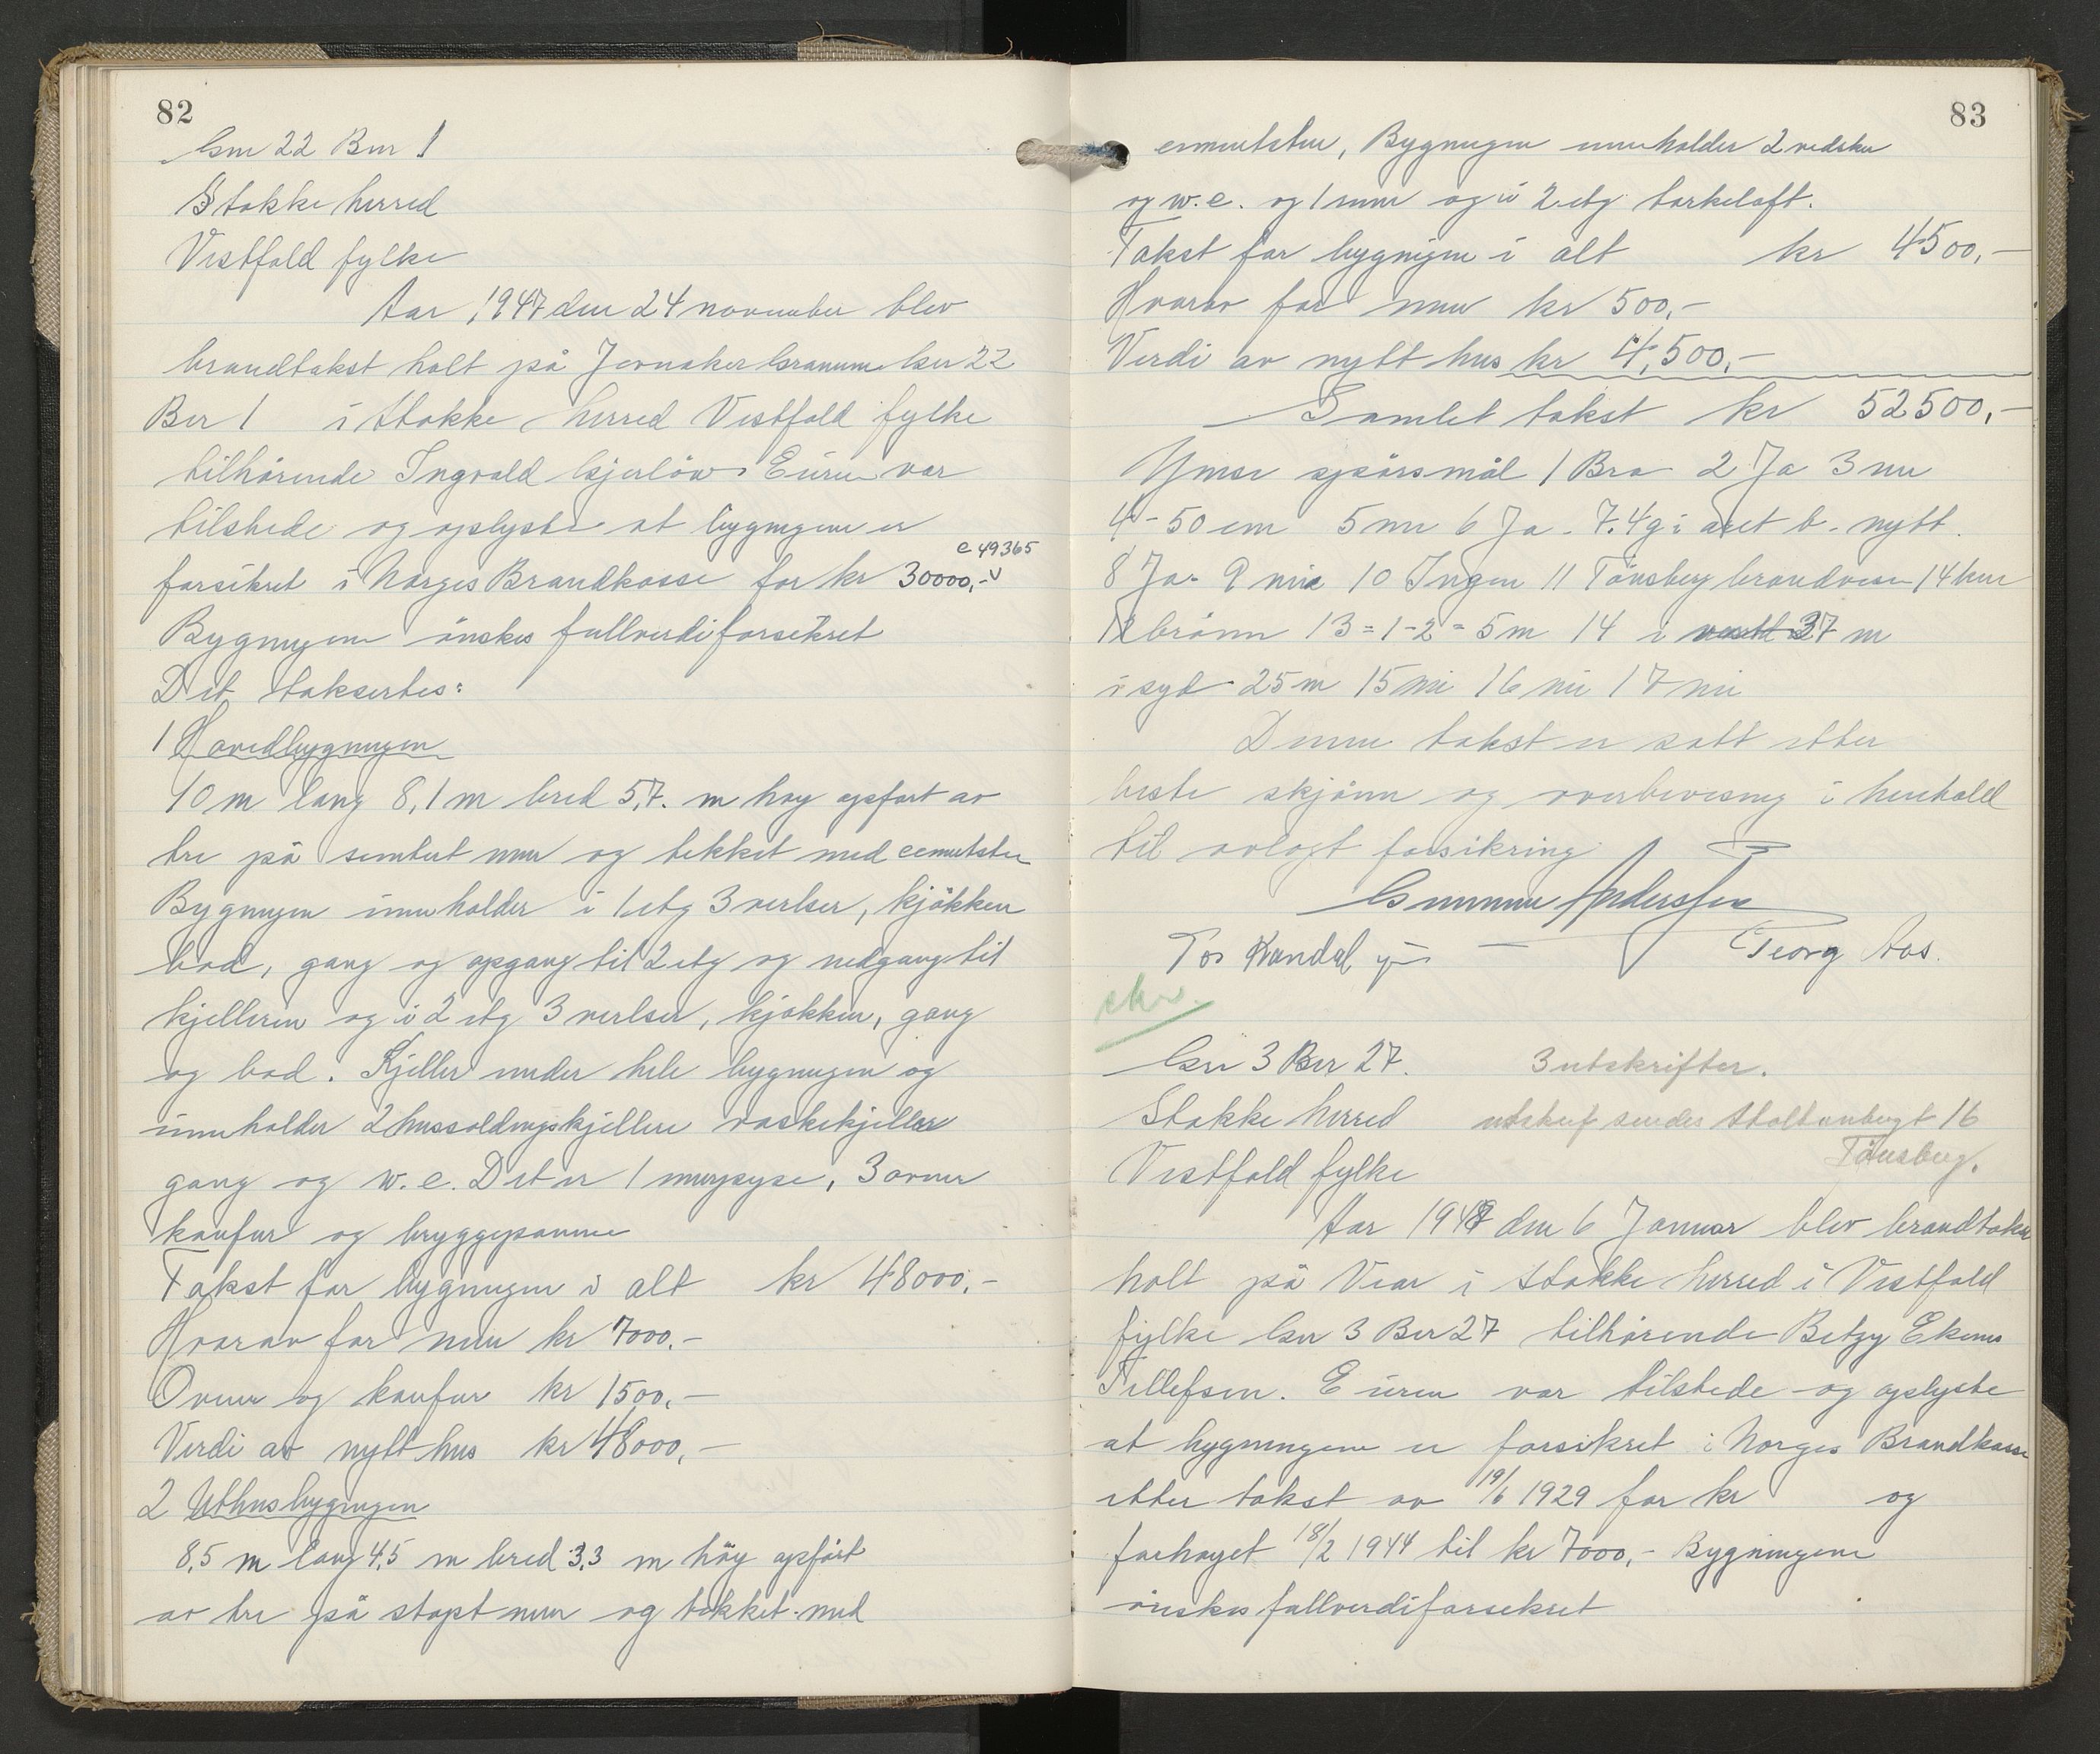 82
Gnr 22 Bnr 1
Stokke herred
Vestfold fylke
Aar 1947 den 24 november blev
brandtakst holt på Jernaker Granum Gnr 22
Bnr 1 i Stokke herred Vestfold fylke
tilhørende Ingvald Gjerløw. Eieren var
tilstede og oplyste at bygningene er
c 49365
forsikret i Norges Brandkasse for kr 30000,-
Bygningene ønskes fullverdiforsikret
Det taksertes:
1 Hovedbygningen
10 m lang 8,1 m bred 5,7. m høy opført av
tre på sementert mur og tekket med cementsten
Bygningen inneholder i 1 etg 3 verlser, kjøkken
bod, gang og opgang til 2 etg og nedgang til
kjelleren og i 2 etg 3 verlser, kjøkken, gang
og bod. Kjeller under hele bygningen og
inneholder 2 hussoldingskjellere vaskekjeller
gang og w.c. Det er 1 murpipe, 3 ovner
komfur og bryggepanne
Takst for bygningen i alt kr 48000,-
Hvorav for mur kr 7000.-
Ovner og komfur kr 1500,-
Verdi av nytt hus kr 48000,-
2 Uthusbygningen
8,5 m lang 4,5 m bred 3,3 m høy opført
av tre på støpt mur og tekket med
83
cementsten, Bygningen inneholder 2 vedskur
og w.c. og 1 rum og i 2 etg tørkeloft.
Takst for bygningen i alt kr 4500,-
Hvorav for mur kr 500,-
Verdi av nytt hus kr 4,500,-
Samlet takst kr 52500,-
Ymse spørsmål 1 Bra 2 Ja 3 nei
4 - 50 cm 5 nei 6 Ja - 7. 4 g i året b. nytt.
8 Ja. 9 nei 10 Ingen 11 Tønsberg brandvesen 14 km
12 brønn 13 = 1 - 2 = 5 m 14 i 37 m
i syd 25 m 15 nei 16 nei 17 nei
Denne takst er satt etter
beste skjønn og overbevisning i henhold
til avlagt forsikring
Gunnar Anderssen
Tor Kandal Georg Aas.
skr.
Gnr 3 Bnr 27. 3 utskrifter.
Stokke herred utskrif sendes Stoltenbergt 16
Tønsberg.
Vestfold fylke
Aar 1948 den 6 Januar blev brandtakst
holt på Vear i Stokke herred i Vestfold
fylke Gnr 3 Bnr 27 tilhørende Betzy Ekenes
Tellefsen. Eieren var tilstede og oplyste
at bygningene er forsikret i Norges Brandkasse
etter takst av 19/6 1929 for kr og
forhøyet 18/2 1944 til kr 7000,- Bygningene
ønskes fullverdiforsekret